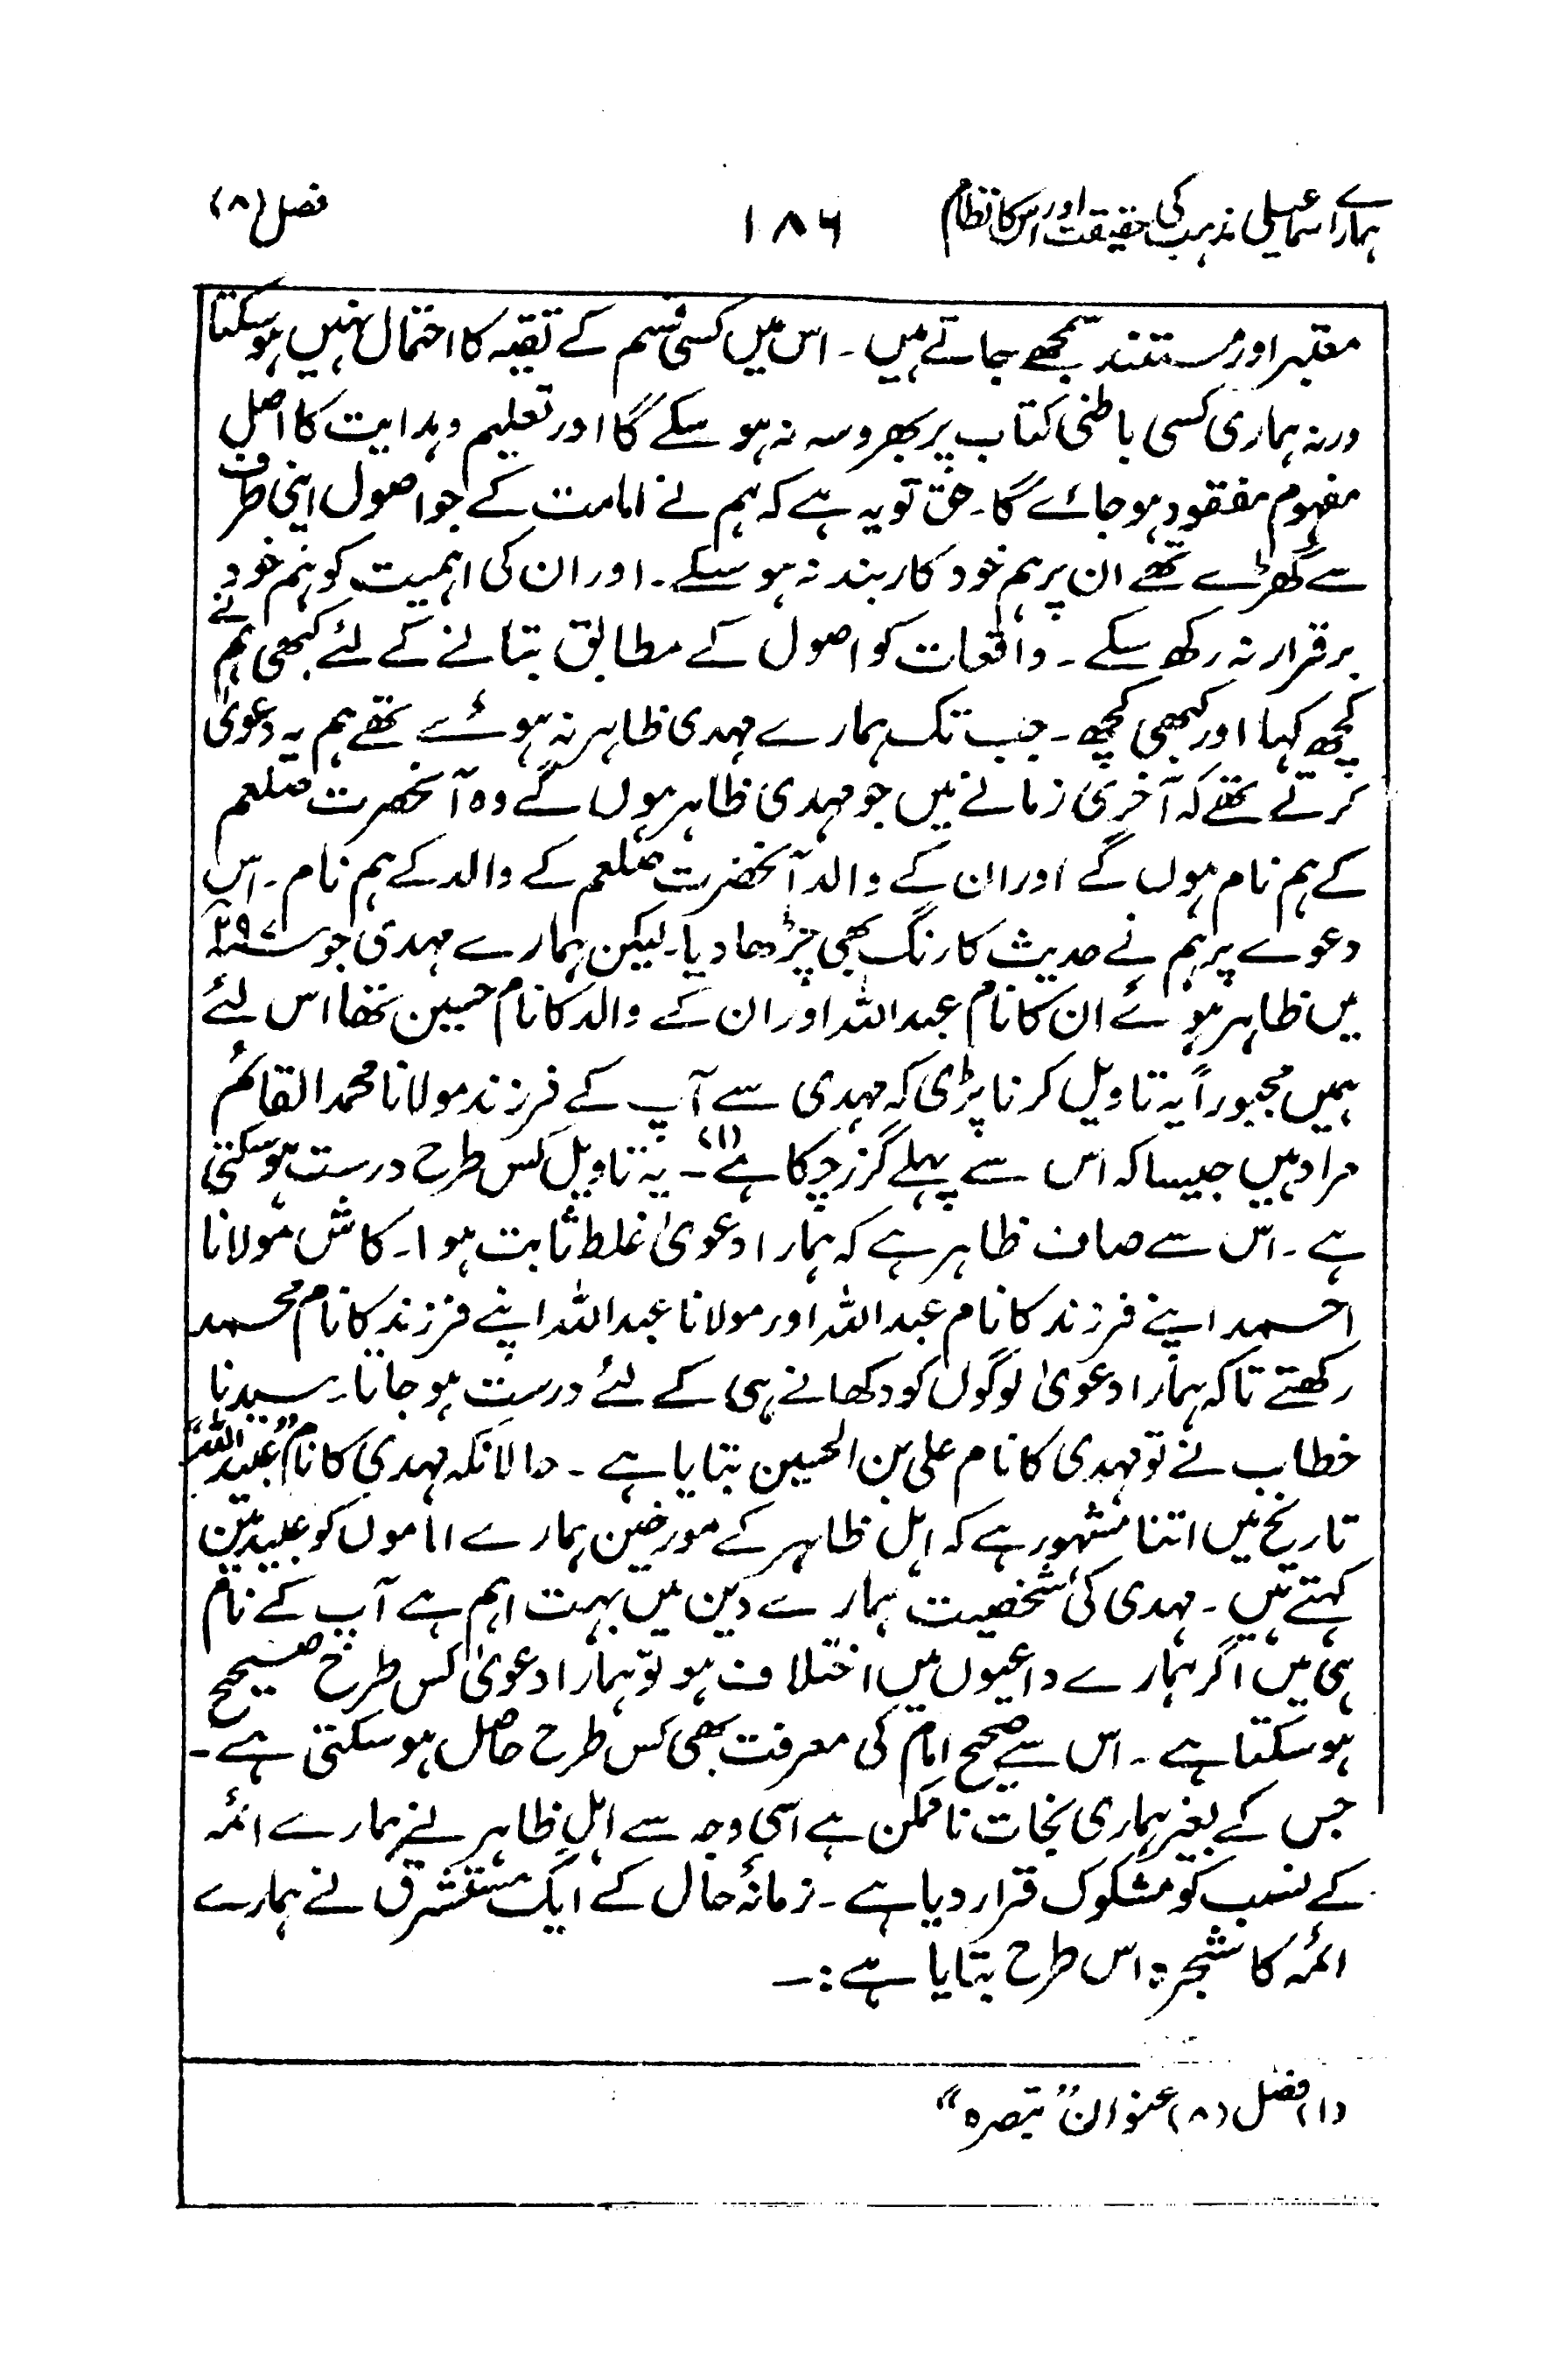 ہمارے اسماعیلی مذہب کی حقیقت اور اس کا نظام ۱۸۶ فصل (۸)
معتبر اور مستند سمجھے جاتے ہیں ۔ اس میں کسی قسم کے تقیہ کا احتمال نہیں ہو سکتا
ورنہ ہماری کسی باطنی کتاب پر بھروسہ نہ ہو سکے گا اور تعلیم و ہدایت کا اصل
مفہوم مفقود ہو جائے گا ۔ حق تو یہ ہے کہ ہم نے امامت کے جو اصول اپنی طرف
سے گھڑے تھے ان پر ہم خود کاربند نہ ہو سکے ۔ اور ان کی اہمیت کو ہم خود
برقرار نہ رکھ سکے ۔ واقعات کو اصول کے مطابق بتانے کے لئے کبھی ہم نے
کچھ کہا اور کبھی کچھ ۔ جب تک ہمارے مہدی ظاہر نہ ہوئے تھے ہم یہ دعویٰ
کرتے تھے کہ آخری زمانے میں جو مہدی ظاہر ہوں گے وہ آنحضرت صلعم
کے ہم نام ہوں گے اور ان کے والد آنحضرت صلعم کے والد کے ہم نام ۔ اس
دعوے پر ہم نے حدیث کا رنگ بھی چڑھا دیا ۔ لیکن ہمارے مہدی جو ۲۹۷ھ
میں ظاہر ہوئے ان کا نام عبداللہ اور ان کے والد کا نام حسین تھا اس لئے
ہمیں مجبوراً یہ تاویل کرنا پڑی کہ مہدی سے آپ کے فرزند مولانا محمد القائم
مراد ہیں جیسا کہ اس سے پہلے گزر چکا ہے (۱) ۔ یہ تاویل کس طرح درست ہو سکتی
ہے ۔ اس سے صاف ظاہر ہے کہ ہمارا دعویٰ غلط ثابت ہوا ۔ کاش مولانا
احمد اپنے فرزند کا نام عبداللہ اور مولانا عبداللہ اپنے فرزند کا نام محمد
رکھتے تاکہ ہمارا دعویٰ لوگوں کو دکھانے ہی کے لئے درست ہو جاتا ۔ سیدنا
خطاب نے تو مہدی کا نام علی بن الحسین بتایا ہے ۔ حالانکہ مہدی کا نام "عبید اللہ"
تاریخ میں اتنا مشہور ہے کہ اہل ظاہر کے مورخین ہمارے اماموں کو عبیدیین
کہتے ہیں ۔ مہدی کی شخصیت ہمارے دین میں بہت اہم ہے آپ کے نام
ہی میں اگر ہمارے داعیوں میں اختلاف ہو تو ہمارا دعویٰ کس طرح صحیح
ہو سکتا ہے ۔ اس سے صحیح امام کی معرفت بھی کس طرح حاصل ہو سکتی ہے ۔
جس کے بغیر ہماری نجات ناممکن ہے اسی وجہ سے اہلِ ظاہر نے ہمارے ائمہ
کے نسب کو مشکوک قرار دیا ہے ۔ زمانۂ حال کے ایک مستشرق نے ہمارے
ائمہ کا شجرہ اس طرح بتایا ہے :۔
(۱) فصل (۸) عنوان "تبصرہ"